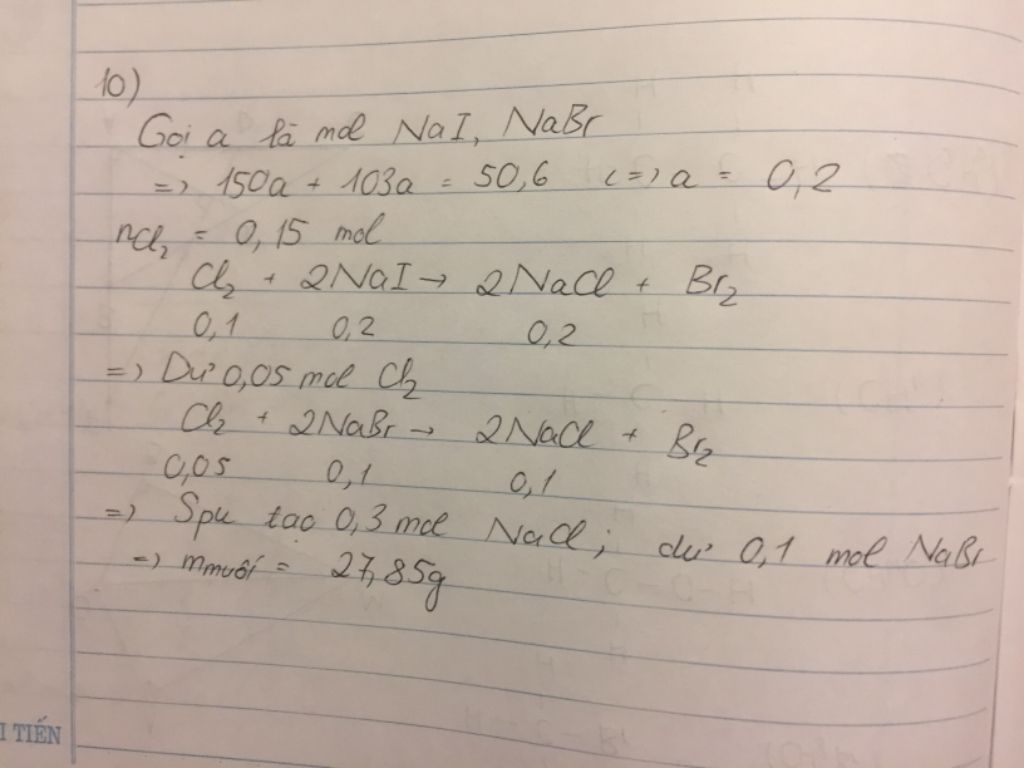 10)
Gọi a là mol NaI, NaBr
=> 150a + 103a = 50,6 <=> a = 0,2
nCl₂ = 0,15 mol
Cl₂ + 2NaI → 2NaCl + Br₂
0,1 0,2 0,2
=> Dư 0,05 mol Cl₂
Cl₂ + 2NaBr → 2NaCl + Br₂
0,05 0,1 0,1
=> Spu tạo 0,3 mol NaCl; dư 0,1 mol NaBr
=> mmuối = 27,85g
I TIẾN